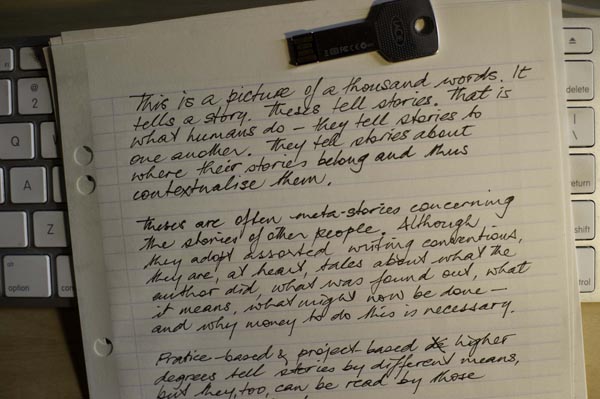 @
2
Q
A
Z
option
delete
return
shift
LACIE
This is a picture of a thousand words. It
tells a story. Theses tell stories. That is
what humans do – they tell stories to
one another. They tell stories about
where their stories belong and thus
contextualise them.
Theses are often meta-stories concerning
the stories of other people. Although
they adopt assorted writing conventions,
they are, at heart, tales about what the
author did, what was found out, what
it means, what might now be done –
and why money to do this is necessary.
Pratice-based & project-based higher
degrees tell stories by different means,
but they, too, can be read by those